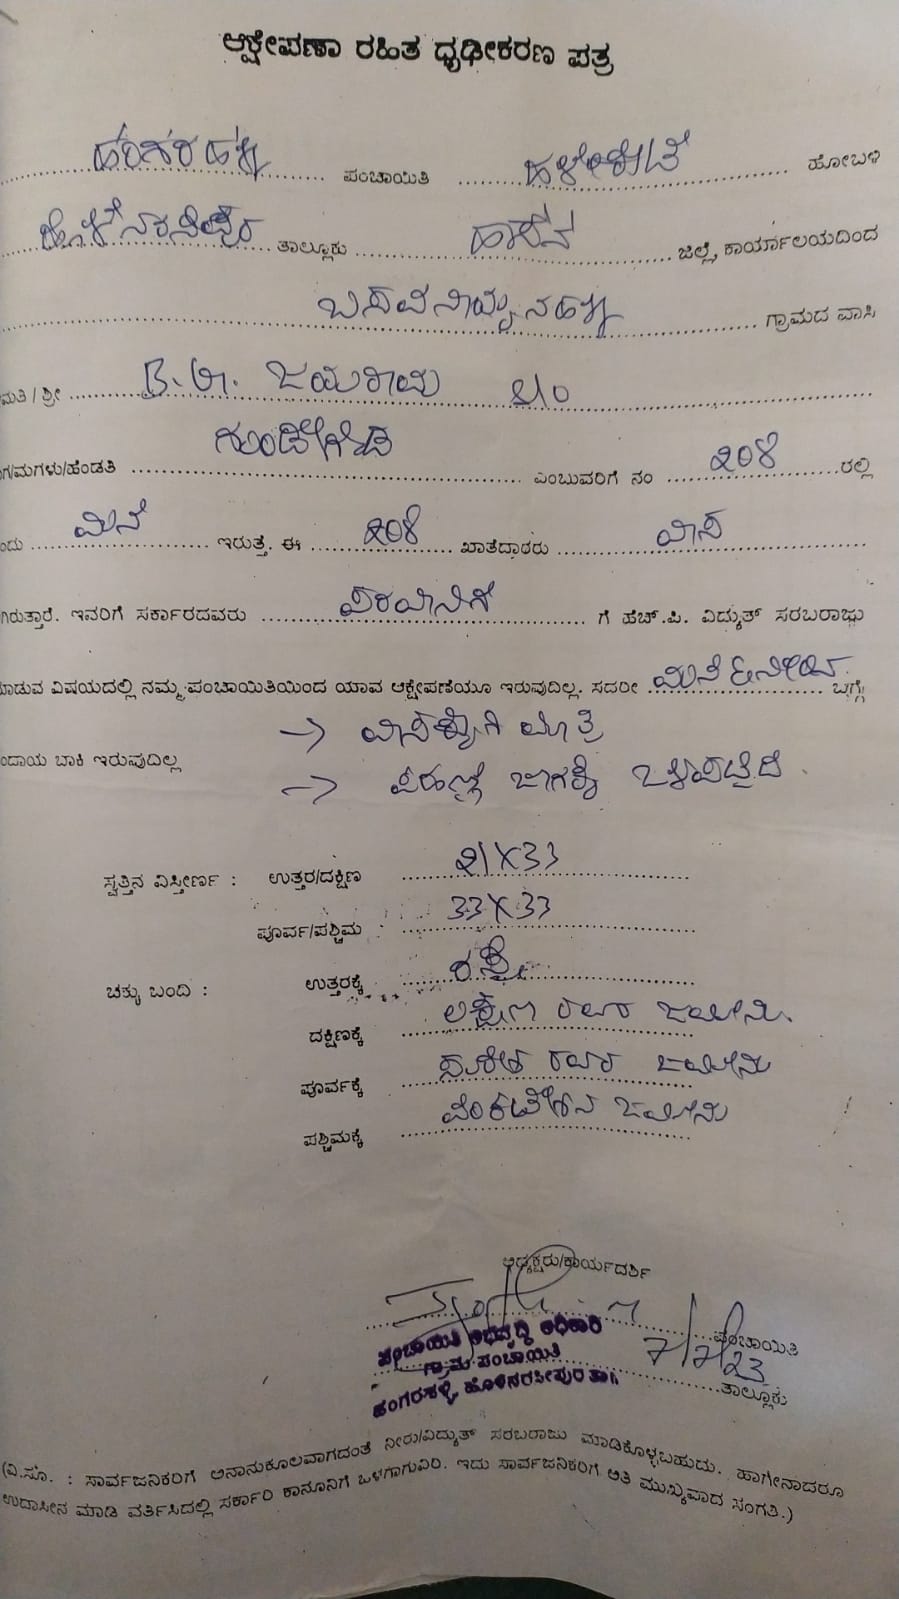 ಆಕ್ಷೇಪಣಾ ರಹಿತ ಧೃಢೀಕರಣ ಪತ್ರ
ಹಂಗರಹಳ್ಳಿ ಪಂಚಾಯಿತಿ ಹಳೇಕೋಟೆ ಹೋಬಳಿ
ಹೊಳೆನರಸೀಪುರ ತಾಲ್ಲೂಕು ಹಾಸನ ಜಿಲ್ಲೆ, ಕಾರ್ಯಾಲಯದಿಂದ
ಗ್ರಾಮದ ವಾಸಿ
ಮತಿ / ಶ್ರೀ B.G. ಜಯರಾಮ S/o
ಗ/ಮಗಳು/ಹೆಂಡತಿ ಗುಂಡೇಗೌಡ ಎಂಬುವರಿಗೆ ನಂ 208 ರಲ್ಲಿ
ಂದು ಮನೆ ಇರುತ್ತೆ. ಈ 208 ಖಾತೆದಾರರು ವಾಸ
ಗಿರುತ್ತಾರೆ. ಇವರಿಗೆ ಸರ್ಕಾರದವರು ಪರವಾನಿಗೆ ಗೆ ಹೆಚ್.ಪಿ. ವಿದ್ಯುತ್ ಸರಬರಾಜು
ಮಾಡುವ ವಿಷಯದಲ್ಲಿ ನಮ್ಮ ಪಂಚಾಯಿತಿಯಿಂದ ಯಾವ ಆಕ್ಷೇಪಣೆಯೂ ಇರುವುದಿಲ್ಲ. ಸದರೀ ಮನೆ ಬಗ್ಗೆ
ಂದಾಯ ಬಾಕಿ ಇರುವುದಿಲ್ಲ
→ ವಾಸಕ್ಕಾಗಿ ಮಾತ್ರ
→ ಜಾಗಕ್ಕೆ ಒಳಪಟ್ಟಿದೆ.
ಸ್ವತ್ತಿನ ವಿಸ್ತೀರ್ಣ : ಉತ್ತರ/ದಕ್ಷಿಣ 21X33
ಪೂರ್ವ/ಪಶ್ಚಿಮ : 33X33
ಚಕ್ಕು ಬಂದಿ : ಉತ್ತರಕ್ಕೆ ರಸ್ತೆ
ದಕ್ಷಿಣಕ್ಕೆ ಲಕ್ಷ್ಮಣ ರವರ ಜಮೀನು.
ಪೂರ್ವಕ್ಕೆ ರವರ ಜಮೀನು
ಪಶ್ಚಿಮಕ್ಕೆ ವೆಂಕಟೇಶನ ಜಮೀನು
ಅಧ್ಯಕ್ಷರು/ಕಾರ್ಯದರ್ಶಿ
ಪಂಚಾಯಿತಿ
ಪಂಚಾಯಿತಿ ಅಭಿವೃದ್ಧಿ ಅಧಿಕಾರಿ
ಗ್ರಾಮ ಪಂಚಾಯಿತಿ 7/7/23
ಹಂಗರಹಳ್ಳಿ, ಹೊಳೆನರಸೀಪುರ ತಾ॥ ತಾಲ್ಲೂಕು
(ವಿ.ಸೂ. : ಸಾರ್ವಜನಿಕರಿಗೆ ಅನಾನುಕೂಲವಾಗದಂತೆ ನೀರು/ವಿದ್ಯುತ್ ಸರಬರಾಜು ಮಾಡಿಕೊಳ್ಳಬಹುದು. ಹಾಗೇನಾದರೂ
ಉದಾಸೀನ ಮಾಡಿ ವರ್ತಿಸಿದಲ್ಲಿ ಸರ್ಕಾರಿ ಕಾನೂನಿಗೆ ಒಳಗಾಗುವಿರಿ. ಇದು ಸಾರ್ವಜನಿಕರಿಗೆ ಅತಿ ಮುಖ್ಯವಾದ ಸಂಗತಿ.)